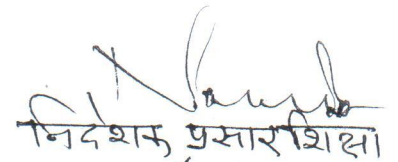 निदेशक प्रसार शिक्षा